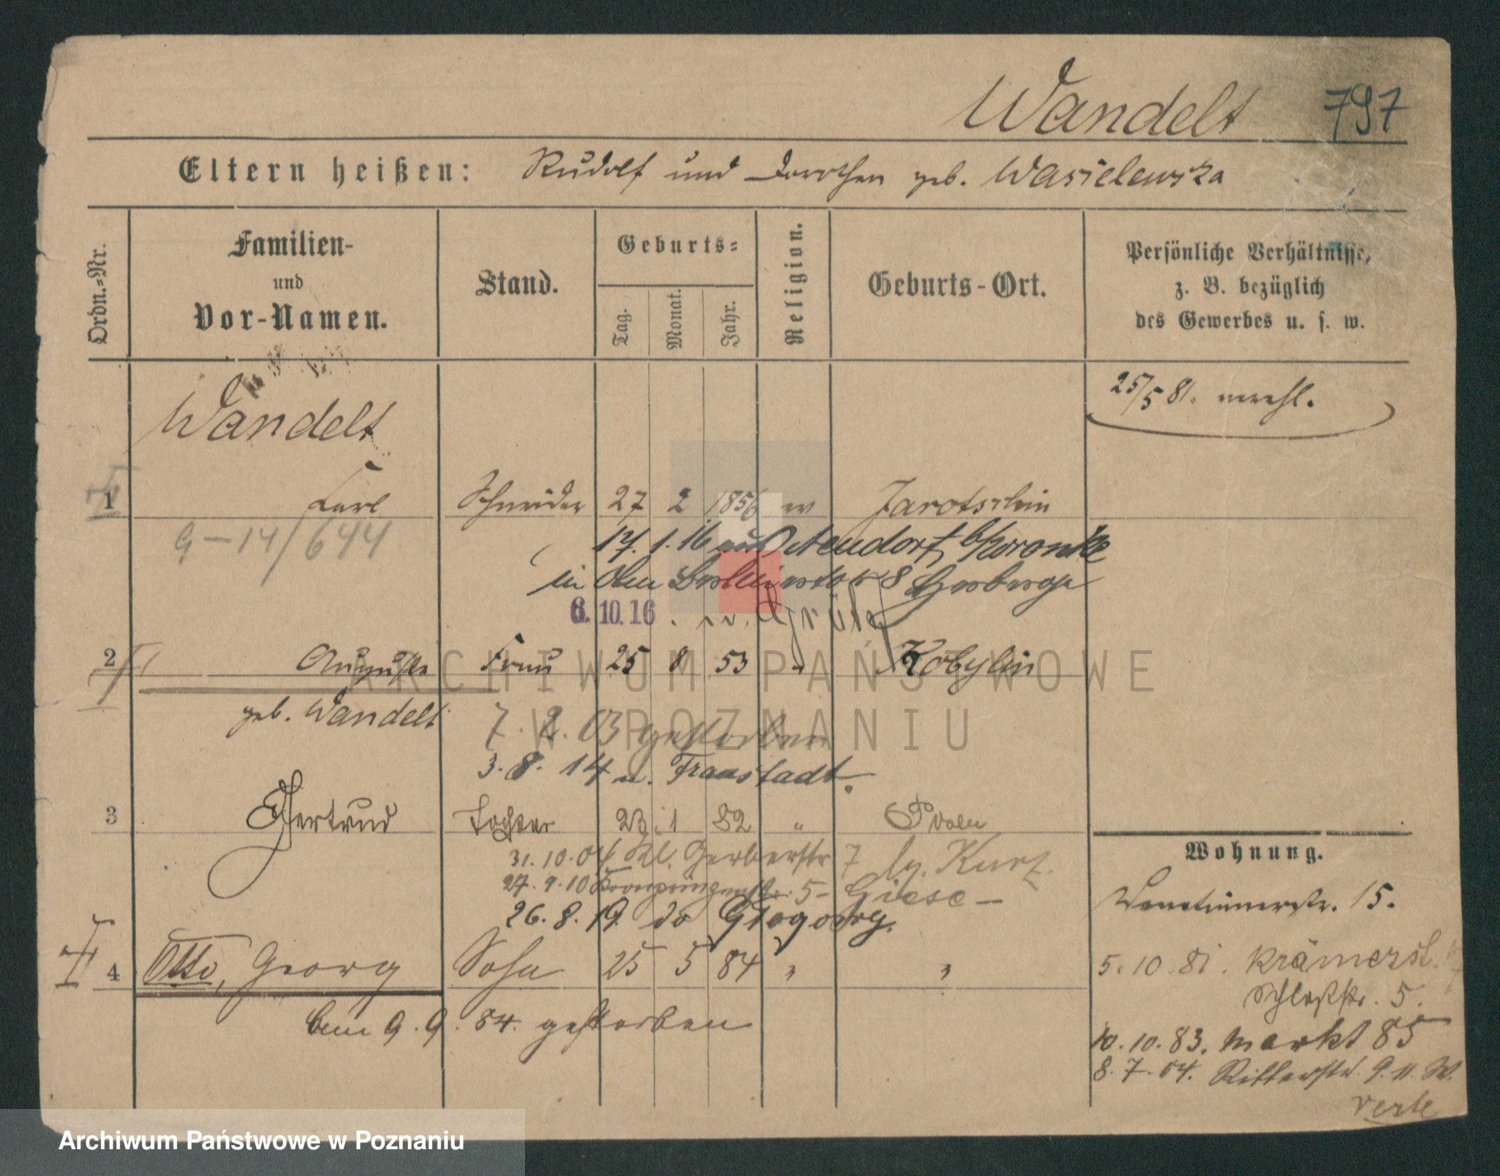 Wandelt 797
Eltern heißen: Rudolf und Dorothea geb. Wasielewska
Ordn.-Nr.
Familien-
und
Vor-Namen.
Stand.
Geburts-
Tag.
Monat.
Jahr.
Religion.
Geburts-Ort.
Persönliche Verhältnisse,
z. B. bezüglich
des Gewerbes u. s. w.
25/5 81. verehl.
Wandelt
1 Carl Schneider 27 2 1856 Jarotschin
9-14/644
17.1.16 aus Neudorf b/Wronke
in
6.10.16
2 Auguste Frau 25 8 53 " Kobylin
geb. Wandelt
7.2.03 gestorben
3.8.14 n. Fraustadt.
3 Gertrud Tochter 23 1 82 " Posen
31.10.04 Kl. Gerberstr 7 Kurz.
27.9.10 Kronprinzenstr. 5- Giese-
26.8.19 Glogau
4 Otto, Georg Sohn 25 5 84 " "
am 9.9.84. gestorben
Wohnung.
Venetianerstr. 15.
5.10.81. Krämerst.
Schloßstr. 5.
10.10.83. Markt 85
8.7.04. Ritterstr. 9. II. W.
ARCHIWUM PAŃSTWOWE
W POZNANIU
Archiwum Państwowe w Poznaniu